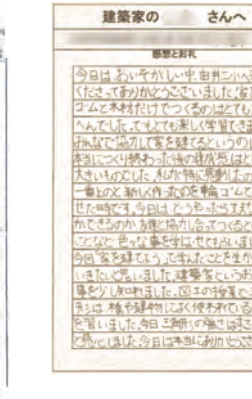 建築家の さんへ
感想とお礼
今日は、おいそがしい中、由井二小へ
くださってありがとうございました。家
ゴムと木材だけでつくるのはとても
へんでした。でもとても楽しく学習でき
みんなで協力して家を建てるというの
本当につくり終わった後の達成感はと
大きいものでした。私が特に感動したの
一番上のと新しく作ったのを輪ゴムで
せた時です。今日は、どうやったら丈
かできるのか友達と協力し合ってつくると
ことなど色々な事を学ばせてもらいま
今回「家を建てよう」で学んだことを生か
いきたいと思いました。建築家という
事を少し知れました。図工の授業で
形は、橋や建物によく使われている
を習いました。今日三角形の強さはす
と感じました。今日は本当にありがとうご